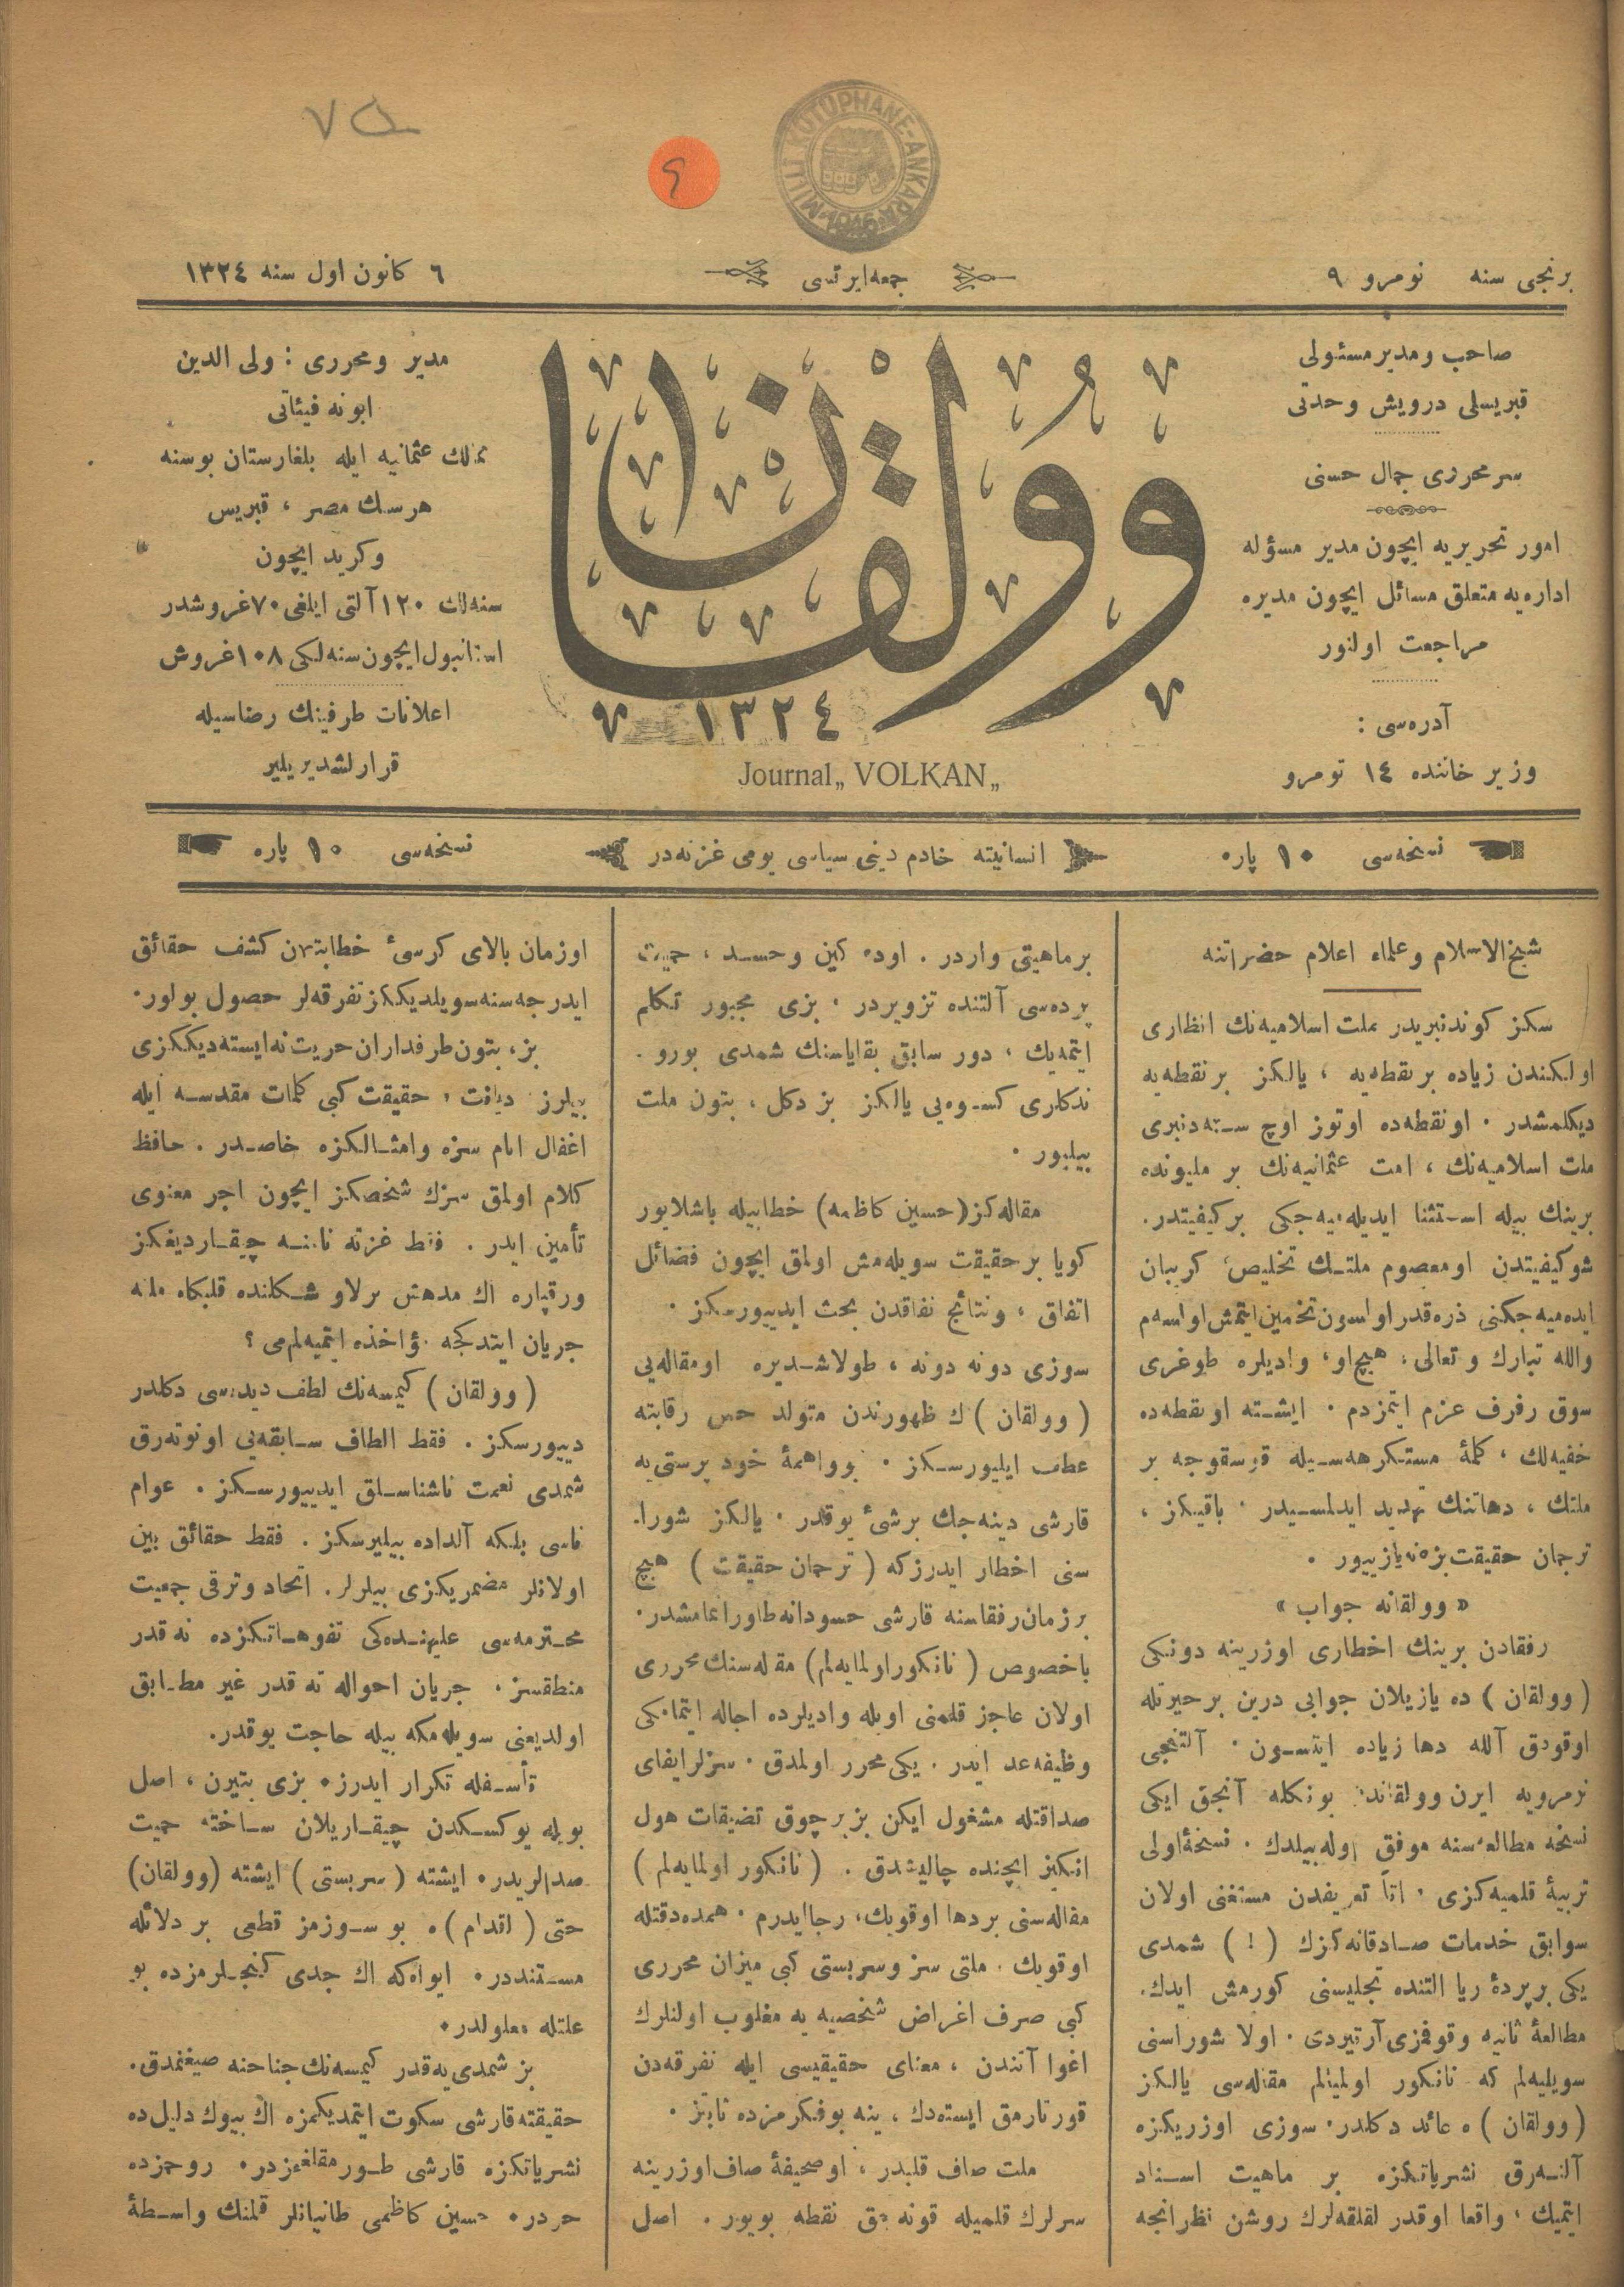 ٧٥
٩
MİLLİ KÜTÜPHANE-ANKARA
برنجی سنه نومرو ٩
جمعه ایرتسی
٦ كانون اول سنه ١٣٢٤
صاحب ومدیر مسئولی
قبریسلی درویش وحدتی
سرمحرری جمال حسنی
امور تحریریه ایچون مدیر مسؤله
اداره‌یه متعلق مسائل ایچون مدیره
مراجعت اولنور
آدره‌سی :
وزیر خاننده ١٤ نومرو
وولقان
١٣٢٤
Journal „ VOLKAN „
مدیر ومحرری : ولی الدین
ابونه فیئاتی
ممالك عثمانیه ایله بلغارستان بوسنه
هرسك مصر ، قبریس
وكرید ایچون
سنه‌لك ١٢٠ آلتی ایلغی ٧٠ غروشدر
استانبول ایچون سنه‌لكی ١٠٨ غروش
اعلانات طرفینك رضاسیله
قرارلشدیریلیر
نسخه‌سی ١٠ پاره
انسانیته خادم دینی سیاسی یومی غزته‌در
نسخه‌سی ١٠ پاره
شیخ الاسلام وعلماء اعلام حضراتنه
سكز كوندنبریدر ملت اسلامیه‌نك انظاری
اولكندن زیاده بر نقطه‌یه ، یالكز بر نقطه‌یه
دیكلمشدر . او نقطه‌ده اوتوز اوچ سنه‌دنبری
ملت اسلامیه‌نك ، امت عثمانیه‌نك بر ملیونده
برینك بیله استثنا ایدیله‌میه‌جكی بر كیفیتدر.
شو كیفیتدن او معصوم ملتك تخلیص كریبان
ایده‌میه‌جكنی ذره قدر اولسون تخمین ایتمش اولسه‌م
والله تبارك و تعالی، هیچ او، وادیلره طوغری
سوق رفرف عزم ایتمزدم . ایشته او نقطه‌ده
خفیه‌لك ، كلمهٔ مستكرهه‌سیله قوسقوجه بر
ملتك ، دهاتنك تهدید ایدلمسیدر . باقیكز ،
ترجمان حقیقت بزه نه یازییور .
« وولقانه جواب »
رفقادن برینك اخطاری اوزرینه دونكی
(وولقان) ده یازیلان جوابی درین بر حیرتله
اوقودق آلله دها زیاده ایتسون . آلتنجی
نومرویه ایرن وولقاندن بونكله آنجق ایكی
نسخه مطالعه‌سنه موفق اوله بیلدك . نسخهٔ اولی
تربیهٔ قلمیه‌كزی ، تعریفدن مستغنی اولان
سوابق خدمات صادقانه‌كزك (!) شمدی
یكی بر پردهٔ ریا التنده تجلیسنی كورمش ایدك.
مطالعهٔ ثانیه وقوفمزی آرتیردی . اولا شوراسنی
سویلیه‌لم كه نانكور اولمیالم مقاله‌سی یالكز
(وولقان) ه عائد دكلدر . سوزی اوزریكزه
آله‌رق نشریاتكزه بر ماهیت اسناد
ایتمیك ، واقعا اوقدر لقلقه‌لرك روشن نظرانجه
بر ماهیتی واردر . اوده كین وحسد ، حمیت
پرده‌سی آلتنده تزویردر . بزی مجبور تكلم
ایتمه‌یك ، دور سابق بقایاسنك شمدی بورو .
ندكلری كسوه‌یی یالكز بز دكل ، بتون ملت
بیلیور .
مقاله‌كز (حسین كاظمه) خطابیله باشلایور
كویا بر حقیقت سویله‌مش اولمق ایچون فضائل
اتفاق ، ونتائج نفاقدن بحث ایدییورسكز .
سوزی دونه دونه ، طولاشدیره اومقاله‌یی
(وولقان) ك ظهورندن متولد حس رقابته
عطف ایلیورسكز . بوواهمهٔ خودپرستی‌یه
قارشی دینه‌جك بر شیٔ یوقدر . یالكز شورا.
سنی اخطار ایدرزكه (ترجمان حقیقت) هیچ
بر زمان رفقاسنه قارشی حسودانه طاورانمامشدر.
باخصوص (نانكور اولمایه‌لم) مقاله‌سنك محرری
اولان عاجز قلمنی اویله وادیلرده اجاله ایتمامكی
وظیفه عد ایدر . یكی محرر اولمدق . سزلر ایفای
صداقتله مشغول ایكن بز بر چوق تضیقات هول
انكیز ایچنده چالیشدق . (نانكور اولمایه‌لم)
مقاله‌سنی بر دها اوقویك، رجا ایدرم . همده دقتله
اوقویك . ملتی سز وسربستی كبی میزان محرری
كبی صرف اغراض شخصیه یه مغلوب اولنلرك
اغوا آتندن ، معنای حقیقیسی ایله تفرقه‌دن
قورتارمق ایسته‌دك ، ینه بو فكرمزده ثابتز .
ملت صاف قلبدر ، او صحیفهٔ صاف اوزرینه
سرلرك قلمیله قونه‌جق نقطه بویور . اصل
اوزمان بالای كرسئ خطابتدن كشف حقائق
ایدرجه‌سنه سویلدیككز تفرقه‌لر حصول بولور.
بز ، بتون طرفداران حریت نه ایسته‌دیككزی
بیلرز دیانت ، حقیقت كبی كلمات مقدسه ایله
اغفال انام سزه وامثالكزه خاصدر . حافظ
كلام اولمق سزك شخصكز ایچون اجر معنوی
تأمین ایدر . فقط غزته نامنه چیقاردیغكز
ورقپاره اك مدهش بر لاو شكلنده قلبكاه ملته
جریان ایتدكجه مؤاخذه ایتمیه‌لم‌می ؟
(وولقان) كیمسه‌نك لطف دیده‌سی دكلدر
دییورسكز . فقط الطاف سابقه‌یی اونوته‌رق
شمدی نعمت ناشناسلق ایدییورسكز . عوام
ناسی بلكه آلداده بیلیرسكز . فقط حقائق بین
اولانلر مضمریكزی بیلرلر. اتحاد وترقی جمعیت
محترمه‌سی علیهنده‌كی تفوهاتكزده نه قدر
منطقسز ، جریان احواله نه قدر غیر مطابق
اولدیغنی سویله‌مكه بیله حاجت یوقدر.
تأسفله تكرار ایدرز . بزی بتیرن ، اصل
بویله یوكسكدن چیقاریلان ساخته حمیت
صدالریدر . ایشته (سربستی) ایشته (وولقان)
حتی (اقدام) . بو سوزمز قطعی بر دلائله
مستنددر . ایواه‌كه اك جدی كنجلرمزده بو
علتله معلولدر .
بز شمدی‌یه قدر كیمسه‌نك جناحنه صیغنمدق.
حقیقته قارشی سكوت ایتمدیكمزه اك بیوك دلیل ده
نشریاتكزه قارشی طور مقابلمزدر . روحمزده
حردر . حسین كاظمی طانیانلر قلمنك واسطهٔ